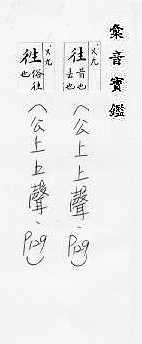 彙音寶鑑
往 昔也去也
徃 俗往也
(公上上聲，P129)
(公上上聲，P129)